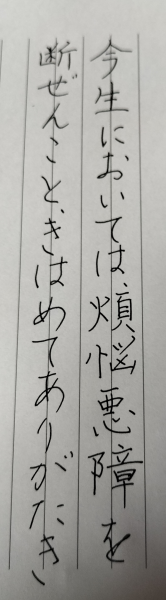 今生においては、煩悩悪障を
断ぜんこと、きはめてありがたき